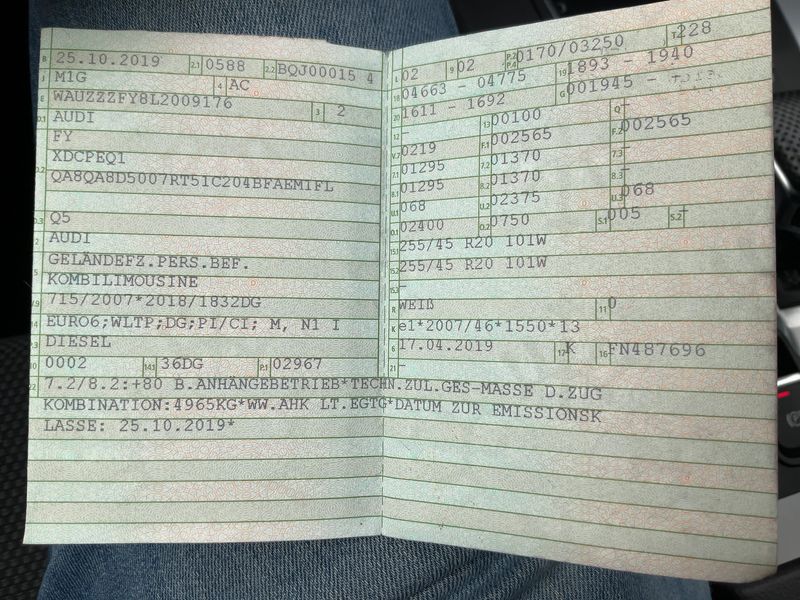 B 25.10.2019 2.1 0588 2.2 BQJ00015 4
J M1G 4 AC
E WAUZZZFY8L2009176 3 2
D.1 AUDI
FY
XDCPEQ1
D.2 QA8QA8D5007RT51C204BFAEM1FL
D.3 Q5
2 AUDI
GELÄNDEFZ.PERS.BEF.
5 KOMBILIMOUSINE
V.9 715/2007*2018/1832DG
14 EURO6;WLTP;DG;PI/CI; M, N1 I
P.3 DIESEL
10 0002 14.1 36DG P.1 02967
22 7.2/8.2:+80 B.ANHÄNGEBETRIEB*TECHN.ZUL.GES-MASSE D.ZUG
KOMBINATION:4965KG*WW.AHK LT.EGTG*DATUM ZUR EMISSIONSK
LASSE: 25.10.2019*
L 02 9 02 P.2 P.4 0170/03250 T 228
18 04663 - 04775 19 1893 - 1940
20 1611 - 1692 G 001945 -
12 - 13 00100 Q -
V.7 0219 F.1 002565 F.2 002565
7.1 01295 7.2 01370 7.3 -
8.1 01295 8.2 01370 8.3 -
U.1 068 U.2 02375 U.3 068
O.1 02400 O.2 0750 S.1 005 S.2 -
15.1 255/45 R20 101W
15.2 255/45 R20 101W
15.3 -
R WEIß 11 0
K e1*2007/46*1550*13
6 17.04.2019 17 K 16 FN487696
21 -